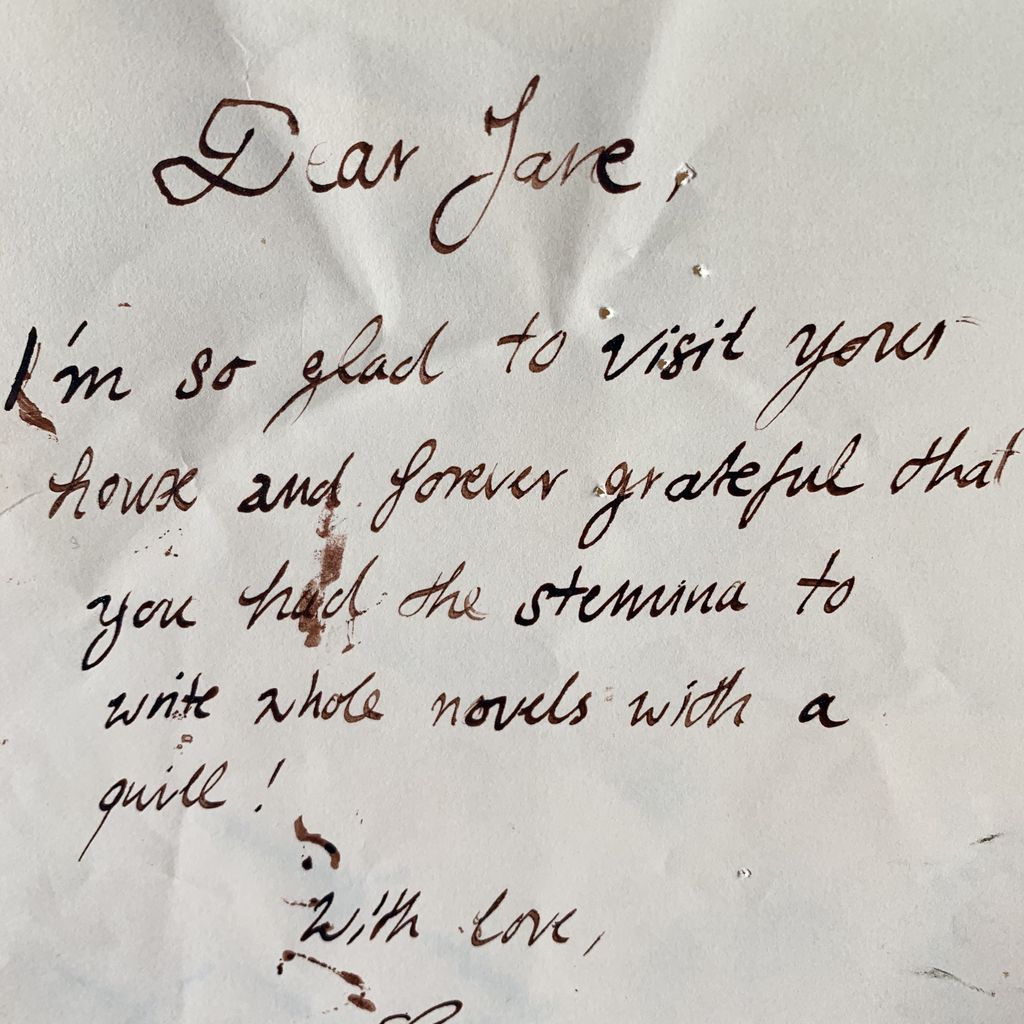 Dear Jane,
I'm so glad to visit your
house and forever grateful that
you had the stemina to
write whole novels with a
quill!
With love,